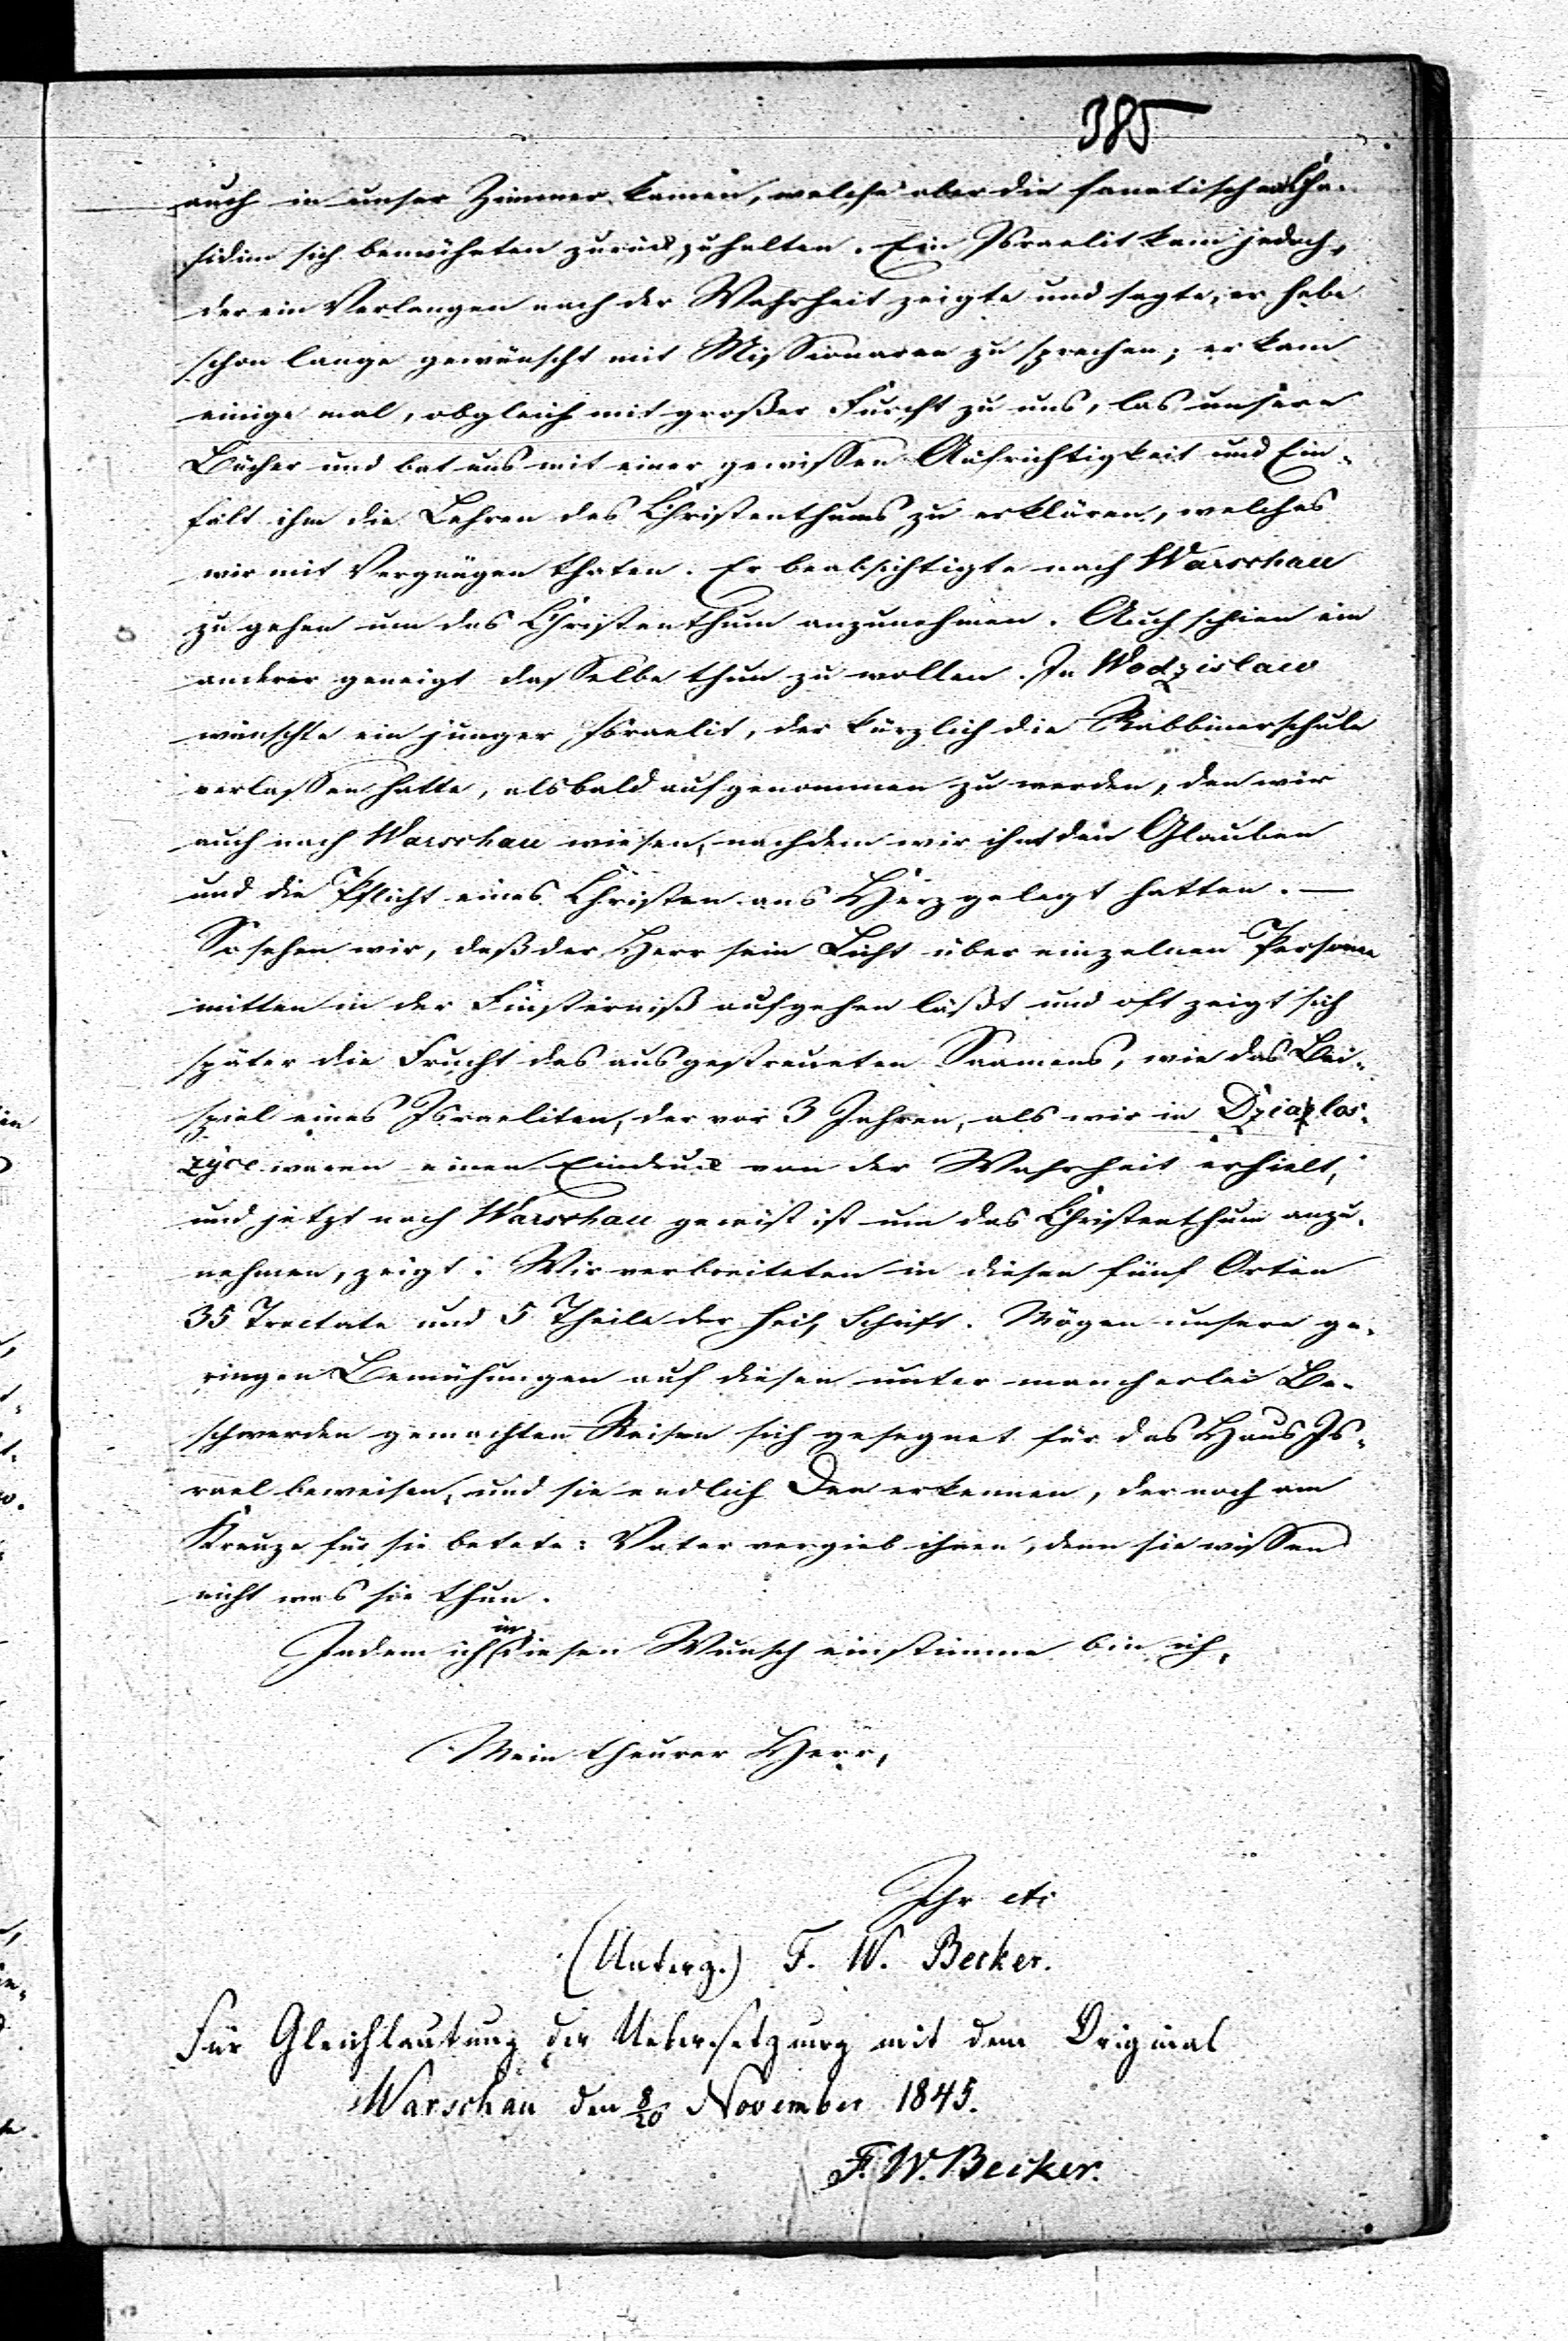 385
auch in unser Zimmer kamen, welche aber die fanatischen Cha-
sidim sich bemühten zurückzuhalten. Ein Israelit kam jedoch,
der ein Verlangen nach der Wahrheit zeigte und sagte, er habe
schon lange gewünscht mit Missionaren zu sprechen; er kam
einige mal, obgleich mit großer Furcht zu uns, las unsere
Bücher und bat uns mit einer gewissen Aufrichtigkeit und Ein-
falt ihm die Lehren des Christenthums zu erklären, welches
wir mit Vergnügen thaten. Er beabsichtigte nach Warschau
zu gehen um das Christenthum anzunehmen. Auch schien ein
anderer geneigt dasselbe thun zu wollen. In Wodzislaw
wünschte ein junger Israelit, der kürzlich die Rabbinerschule
verlassen hatte, alsbald aufgenommen zu werden, den wir
auch nach Warschau wiesen, nachdem wir ihm den Glauben
und die Pflicht eines Christen ans Herz gelegt hatten. —
So sehen wir, daß der Herr sein Licht über einzelnen Personen
mitten in der Finsterniß aufgehen läßt und oft zeigt sich
später die Frucht des ausgestreueten Saamens, wie das Bei-
spiel eines Israeliten, der vor 3 Jahren, als wir in Dzialos-
zyce waren einen Eindruck von der Wahrheit erhielt,
und jetzt nach Warschau gereist ist um das Christenthum anzu-
nehmen, zeigt. Wir verbreiteten in diesen fünf Orten
35 Tractate und 5 Theile der heil. Schrift. Mögen unsere ge-
ringen Bemühungen auf diesen unter mancherlei Be-
schwerden gemachten Reisen sich gesegnet für das Haus Is-
rael beweisen, und sie endlich Den erkennen, der noch am
Kreuze für sie betete: Vater vergieb ihnen, denn sie wissen
nicht was sie thun.
Indem ich in diesen Wunsch einstimme bin ich,
Mein theurer Herr,
Ihr etc
(Unterz.) F. W. Becker.
Für Gleichlautung der Uebersetzung mit dem Original
Warschau den 8/20 November 1845.
F. W. Becker.